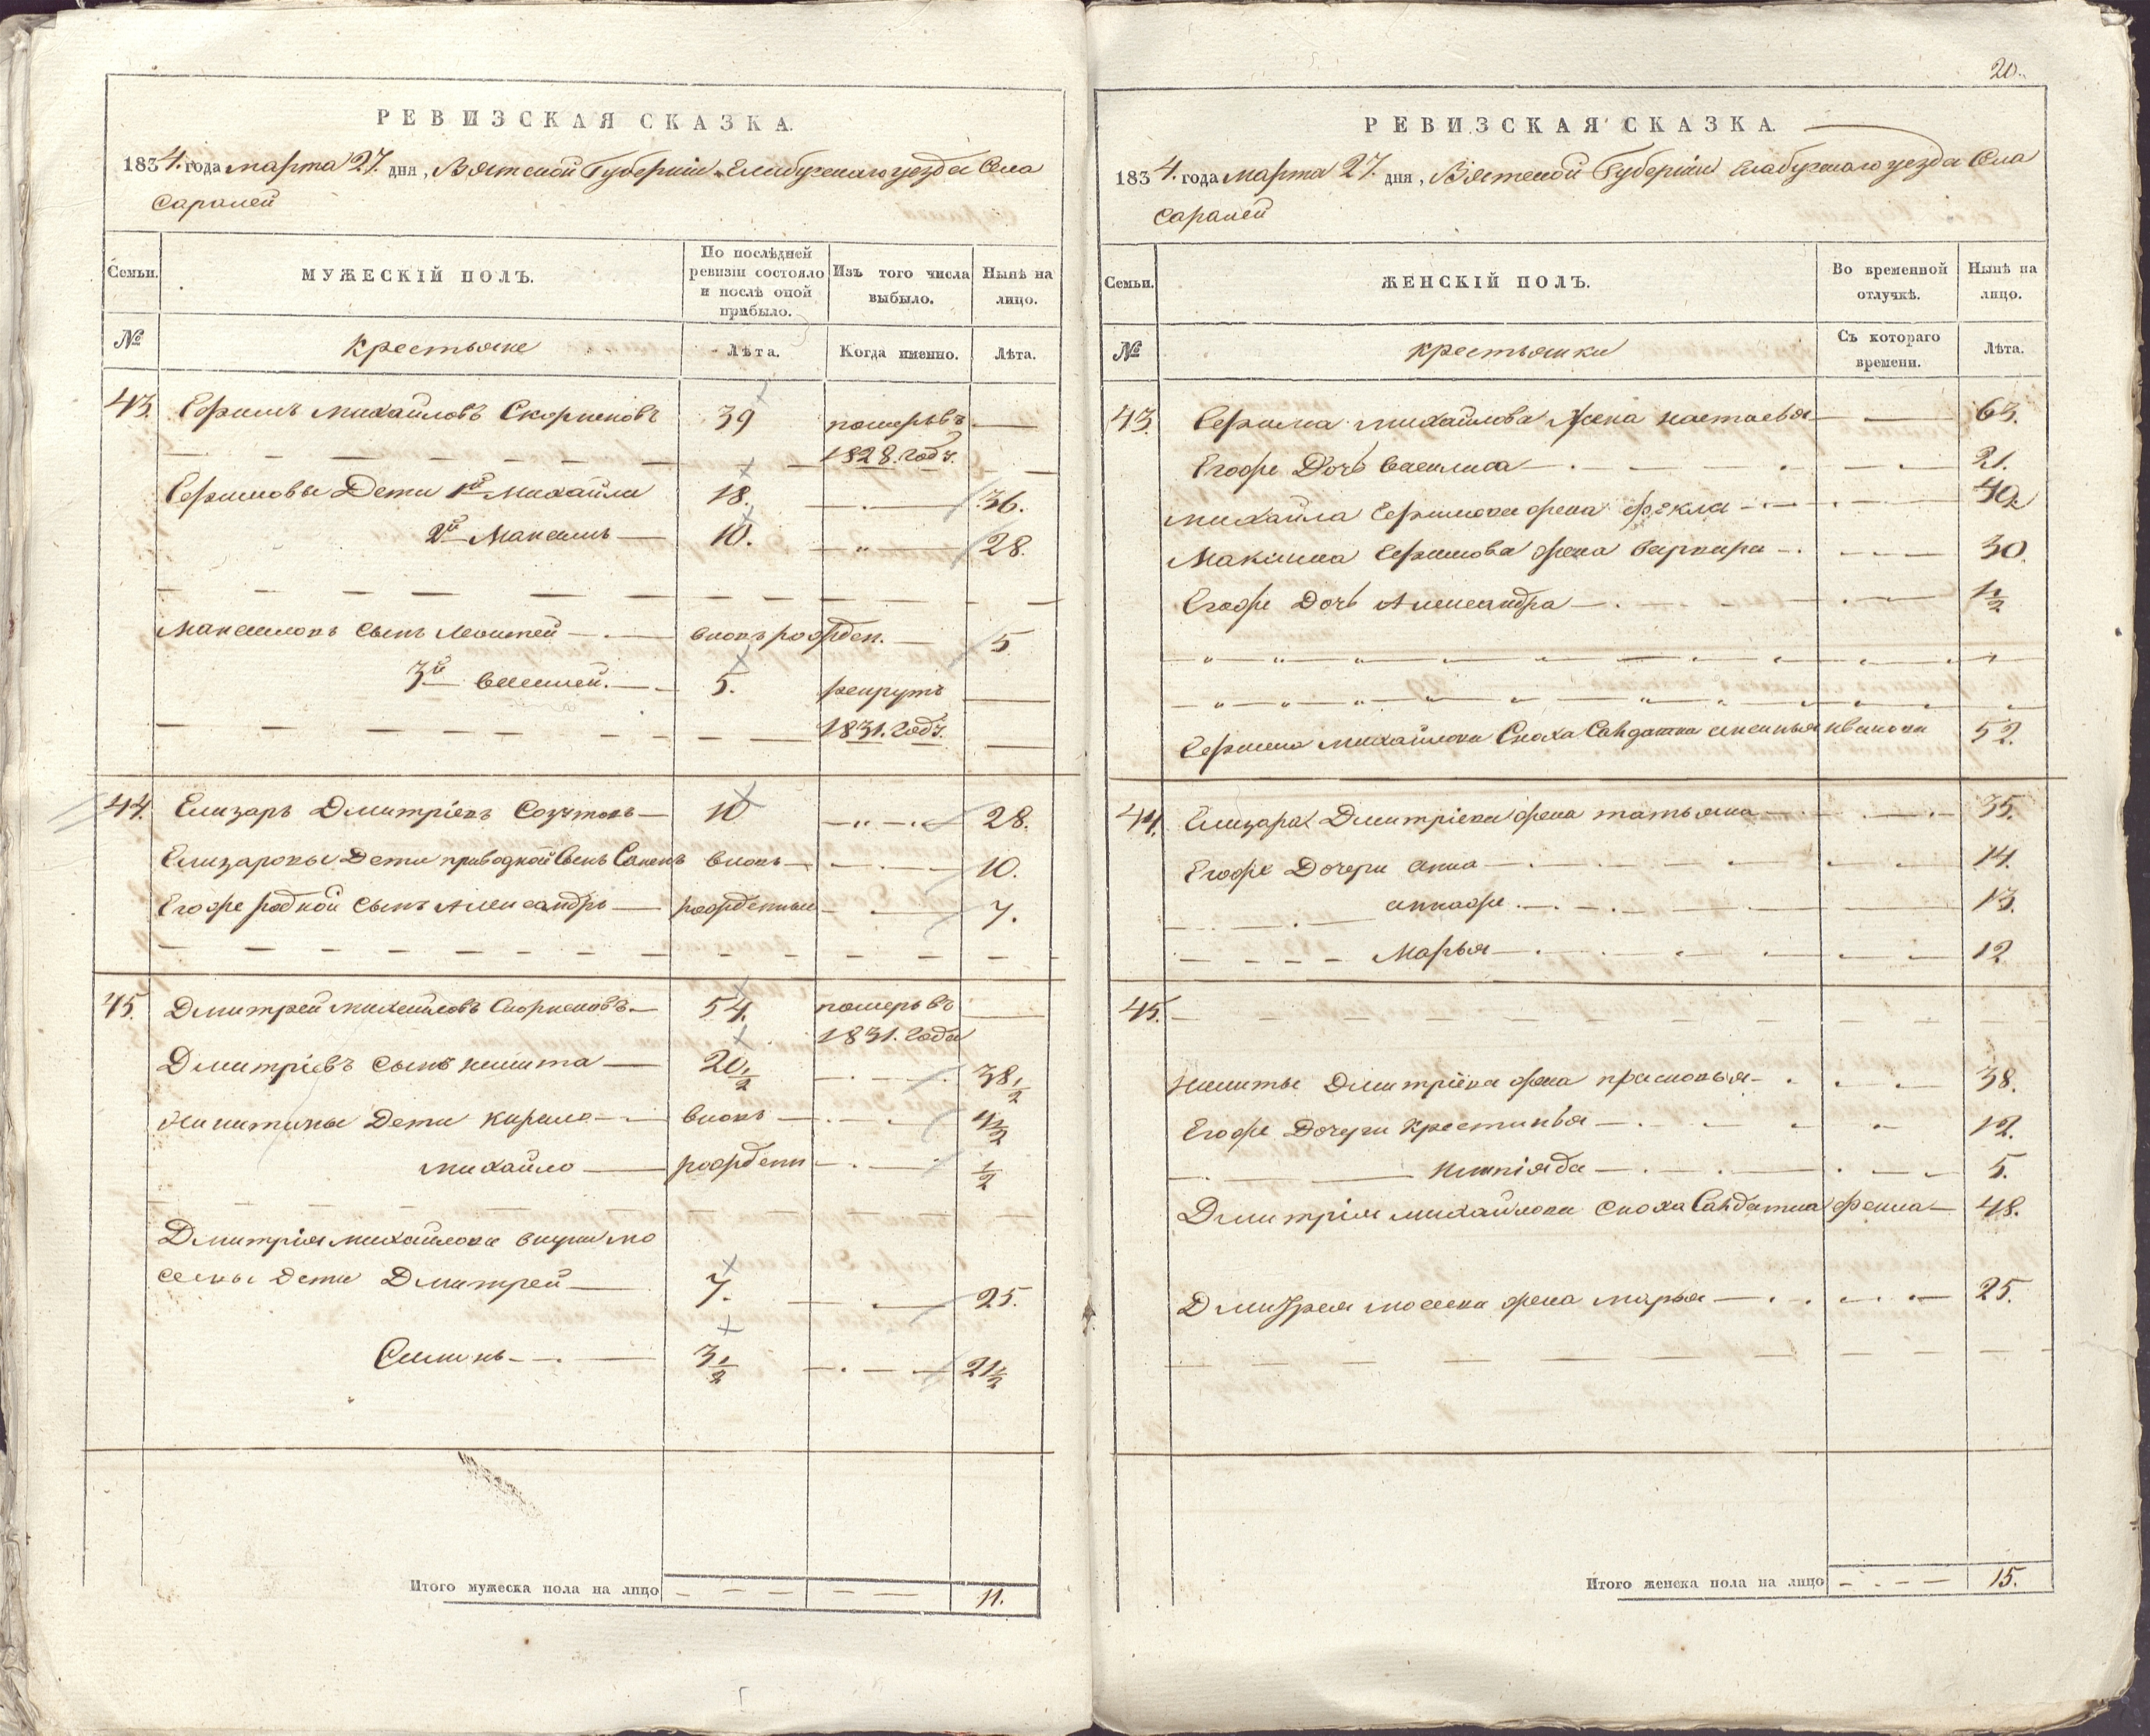 РЕВИЗСКАЯ СКАЗКА.
1834. года марта 27. дня, Вятской Губернии Елабужского уезда Села
Саралей
Семьи. МУЖЕСКІЙ ПОЛЪ. По послѣдней ревизіи состояло и послѣ оной прибыло. Изъ того числа выбыло. Нынѣ на лицо.
№ Крестьяне Лѣта. Когда именно. Лѣта.
43. Ефимъ Михайловъ 39 померъ въ
1828. годѣ.
Ефимовы Дети 1й Михайла 18. 36.
2й Максимъ 10. 28.
Максимовъ сынъ вновь рожден. 5
3й Василей 5. рекрутъ
1831. годѣ.
44. Елизаръ Дмитріевъ 10 28.
Елизаровы Дети приводной Сынъ вновь 10.
Егоже родной сынъ Александръ рожденные 7.
45. Дмитрей Михайловъ 54. померъ въ
1831. года
Дмитріевъ сынъ Никита 20 1/2 38 1/2
Никитины Дети Кирило вновь 4 1/2
Михайло рожденн 1/2
Дмитрія Михайлова внуки Мо
сеевы дети Дмитрей 7. 25.
Симонъ 3 1/2 21 1/2
Итого мужеска пола на лицо 11.
20.
РЕВИЗСКАЯ СКАЗКА.
1834. года марта 27. дня, Вятской Губерніи Елабужского уезда Села
Саралей
Семьи. ЖЕНСКІЙ ПОЛЪ. Во временной отлучкѣ. Нынѣ на лицо.
№ крестьянки Съ котораго времени. Лѣта.
43. Ефима Михайлова Жена Настасья 63.
Егоже Дочь Василиса 21.
Михайла Ефимова жена Фекла 40.
Максима Ефимова жена Варвара 30.
Егоже Дочь Александра 1/2
Ефима Михайлова Сноха Салдатка Аксинья Иванова 52.
44. Елизара Дмитріева жена Татьяна 35.
Егоже Дочери Анна 14.
Аннаже 13.
Марья 12
45.
Никиты Дмитріева жена Прасковья 38.
Егоже Дочери Крестинья 12.
5.
Дмитрія Михайлова сноха Салдатка 48.
Дмитрея Мосеева жена Марья 25.
Итого женска пола на лицо 15.